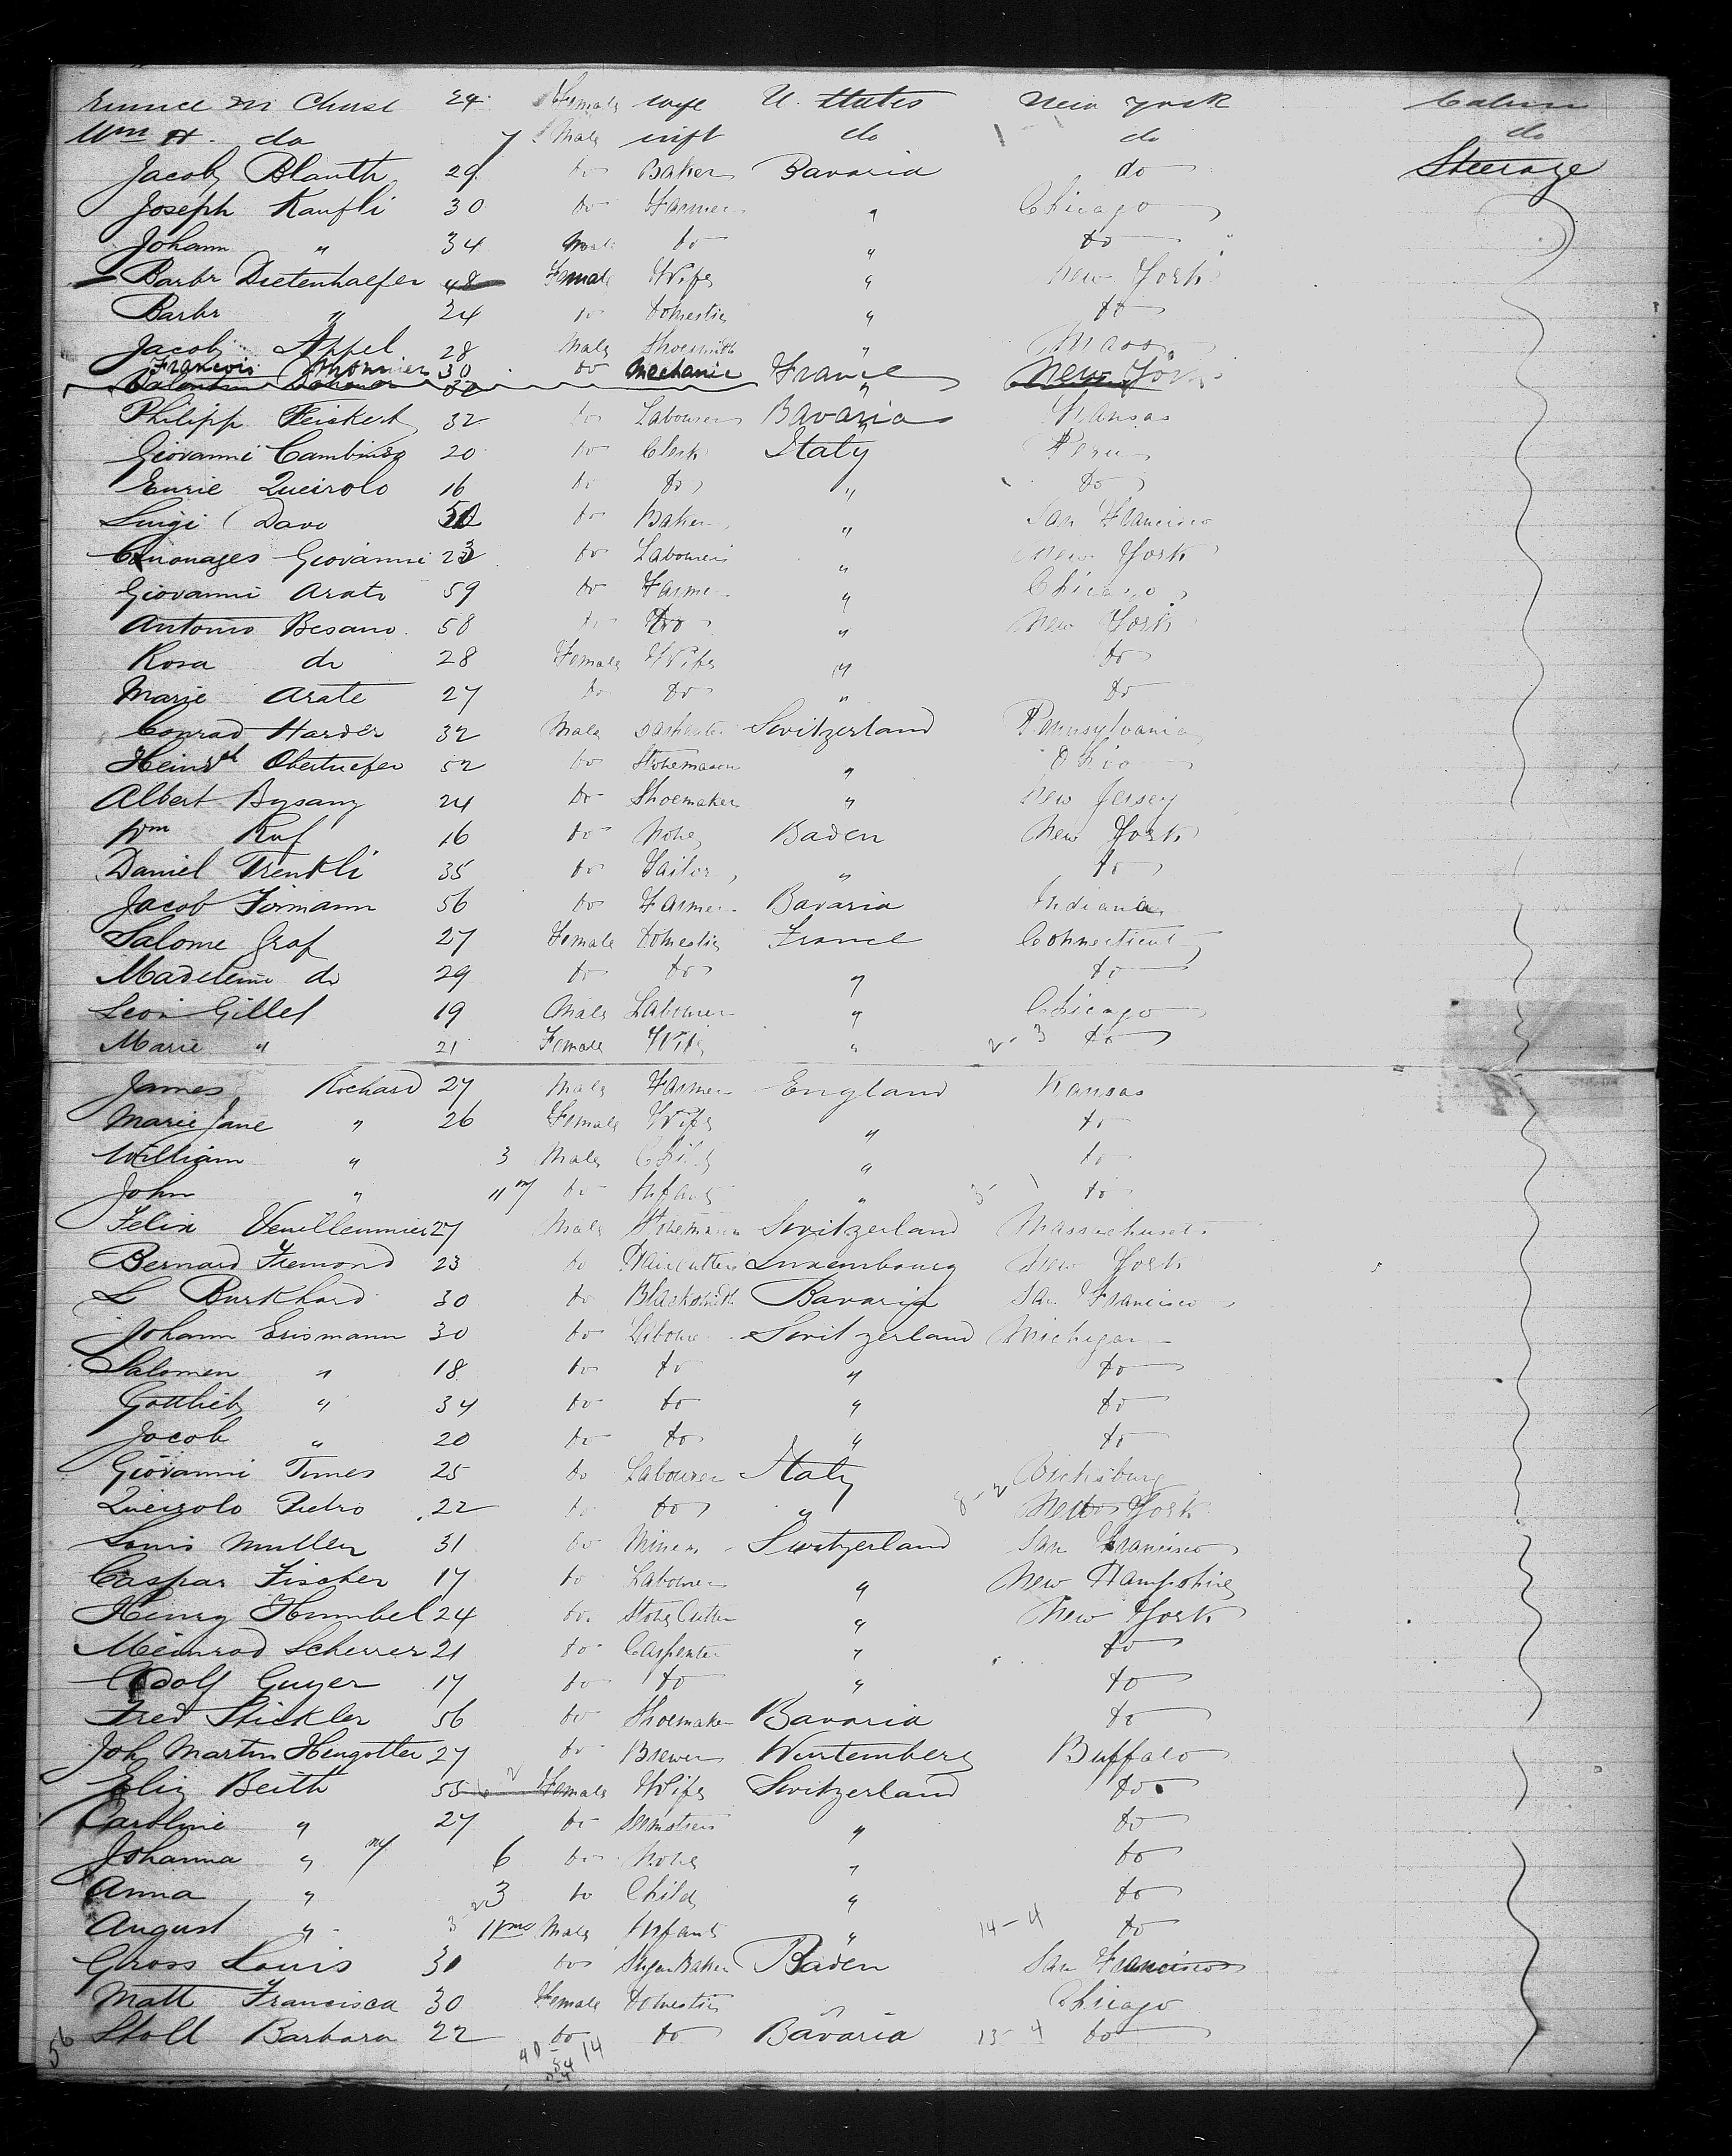 Eunice M Chase 24 Female wife U. States New York Cabin
Wm H. do 7 Male inft do do do
Jacob Blanth 29 do Baker Bavaria do Steerage
Joseph Kaufli 30 do Farmer " Chicago
Johann " 34 Male do " do
Barbr Dietenhaefer 48 Female Wife " New York
Barbr " 24 do Domestic " do
Jacob Appel 28 Male " Mass
Francois 30 do Mechanic France New York
Philipp Feickert 32 do Labourer Bavaria Kansas
Giovanni 20 do Clerk Italy Peru
Enrie Queirolo 16 do do " do
Luigi Davo do Baker " San Francisco
Giovanni 23 do Labourer " New York
Giovanni Arato 59 do Farmer " Chicago
Antonio Besano 58 do do " New York
Rosa do 28 Female Wife " do
Marie Arate 27 do do " do
Conrad Harder 32 Male Switzerland Pennsylvania
Obertuefer 52 do Stonemason " Ohio
Albert Bysang 24 do Shoemaker " New Jersey
Wm Ruf 16 do None Baden New York
Daniel Trenkli 35 do Tailor " do
Jacob Firmann 56 do Farmer Bavaria Indiana
Salome Graf 27 Female Domestic France Connecticut
Madeleine do 29 do do " do
Leon Gillet 19 Male Labourer " Chicago
Marie " 21 Female Wife " 2-3 do
James Richard 27 Male Farmer England Kansas
Marie Jane " 26 Female Wife " do
William " 3 Male Child " do
John " 11m do Infant " do
Felix Veuillemmier 27 Male Stonemason Switzerland Massachuset
Bernard Fremond 23 do Haircutter Luxembourg New York
L Burkhard 30 do Blacksmith Bavaria San Francisco
Johann Erismann 30 do Laboure Switzerland Michigan
Salomen " 18 do do " do
Gottlieb " 34 do do " do
Jacob " 20 do do " do
Giovanni Times 25 do Labourer Italy Vicksburg
Queirolo Pietro 22 do do " New York
Louis Muller 31 do Miner Switzerland San Francisco
Caspar Fischer 17 do Labourer " New Hampshire
Henry Hummbel 24 do Stone Cutter " New York
Meinrad Scherrer 21 do Carpenter " do
Adolf Guyer 17 do do " do
Fred Stickler 56 do Shoemaker Bavaria do
Joh Martin Hengotter 27 do Brewer Wurtemberg Buffalo
Eliz Beith 55 Female Wife Switzerland do
Caroline " 27 do " do
Johanna " 6 do None " do
Anna " 3 do Child " do
August " 11ms Male Infant " 14-4 do
Gross Louis 30 do Sugar Baker Baden San Francisco
Matt Francisca 30 Female Domestic " Chicago
56 Stoll Barbara 22 do do Bavaria 13-4 do
40 14
54